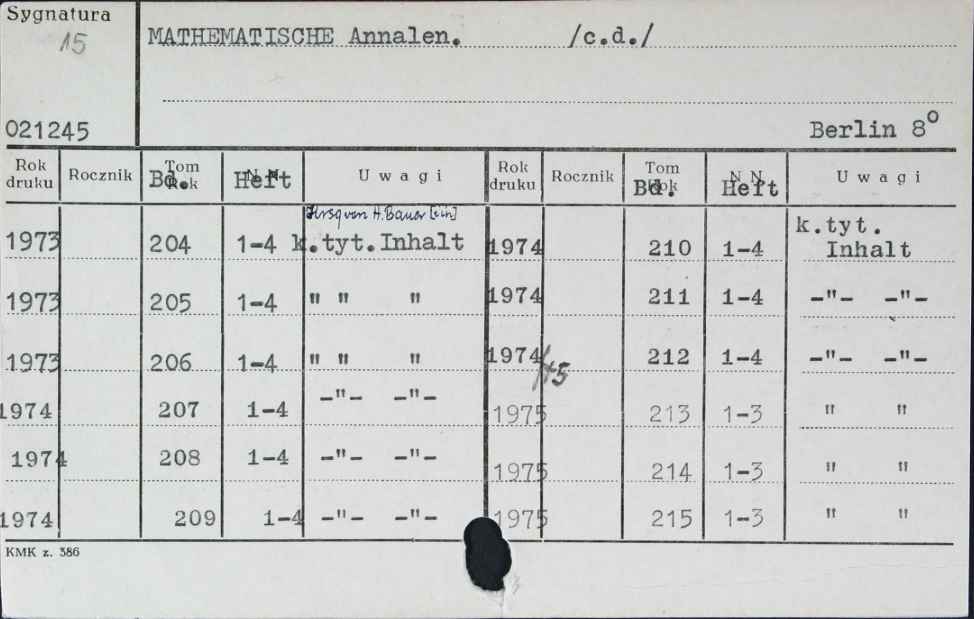 Sygnatura
15
MATHEMATISCHE Annalen. /c.d./
021245
Berlin 8°
Rok druku Rocznik Tom Rok Bd. N N Heft Uwagi Rok druku Rocznik Tom Rok Bd. N N Heft Uwagi
H. Bauer
1973 204 1-4 k.tyt.Inhalt 1974 210 1-4 k.tyt. Inhalt
1973 205 1-4 " " " 1974 211 1-4 -"- -"-
1973 206 1-4 " " " 1974/75 212 1-4 -"- -"-
1974 207 1-4 -"- -"- 1975 213 1-3 " "
1974 208 1-4 -"- -"- 1975 214 1-3 " "
1974 209 1-4 -"- -"- 1975 215 1-3 " "
KMK z. 386